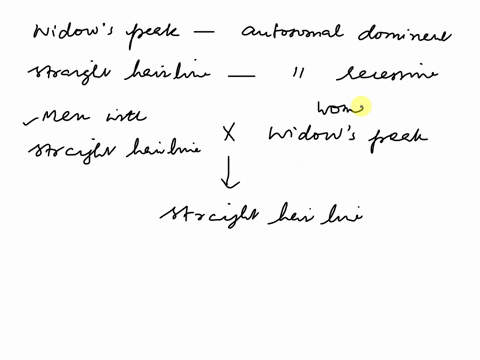 Widow's peak — autosomal dominent
straight hairline — " recessive
✓ Men with wom
straight hairline X Widow's peak
↓
straight hair line